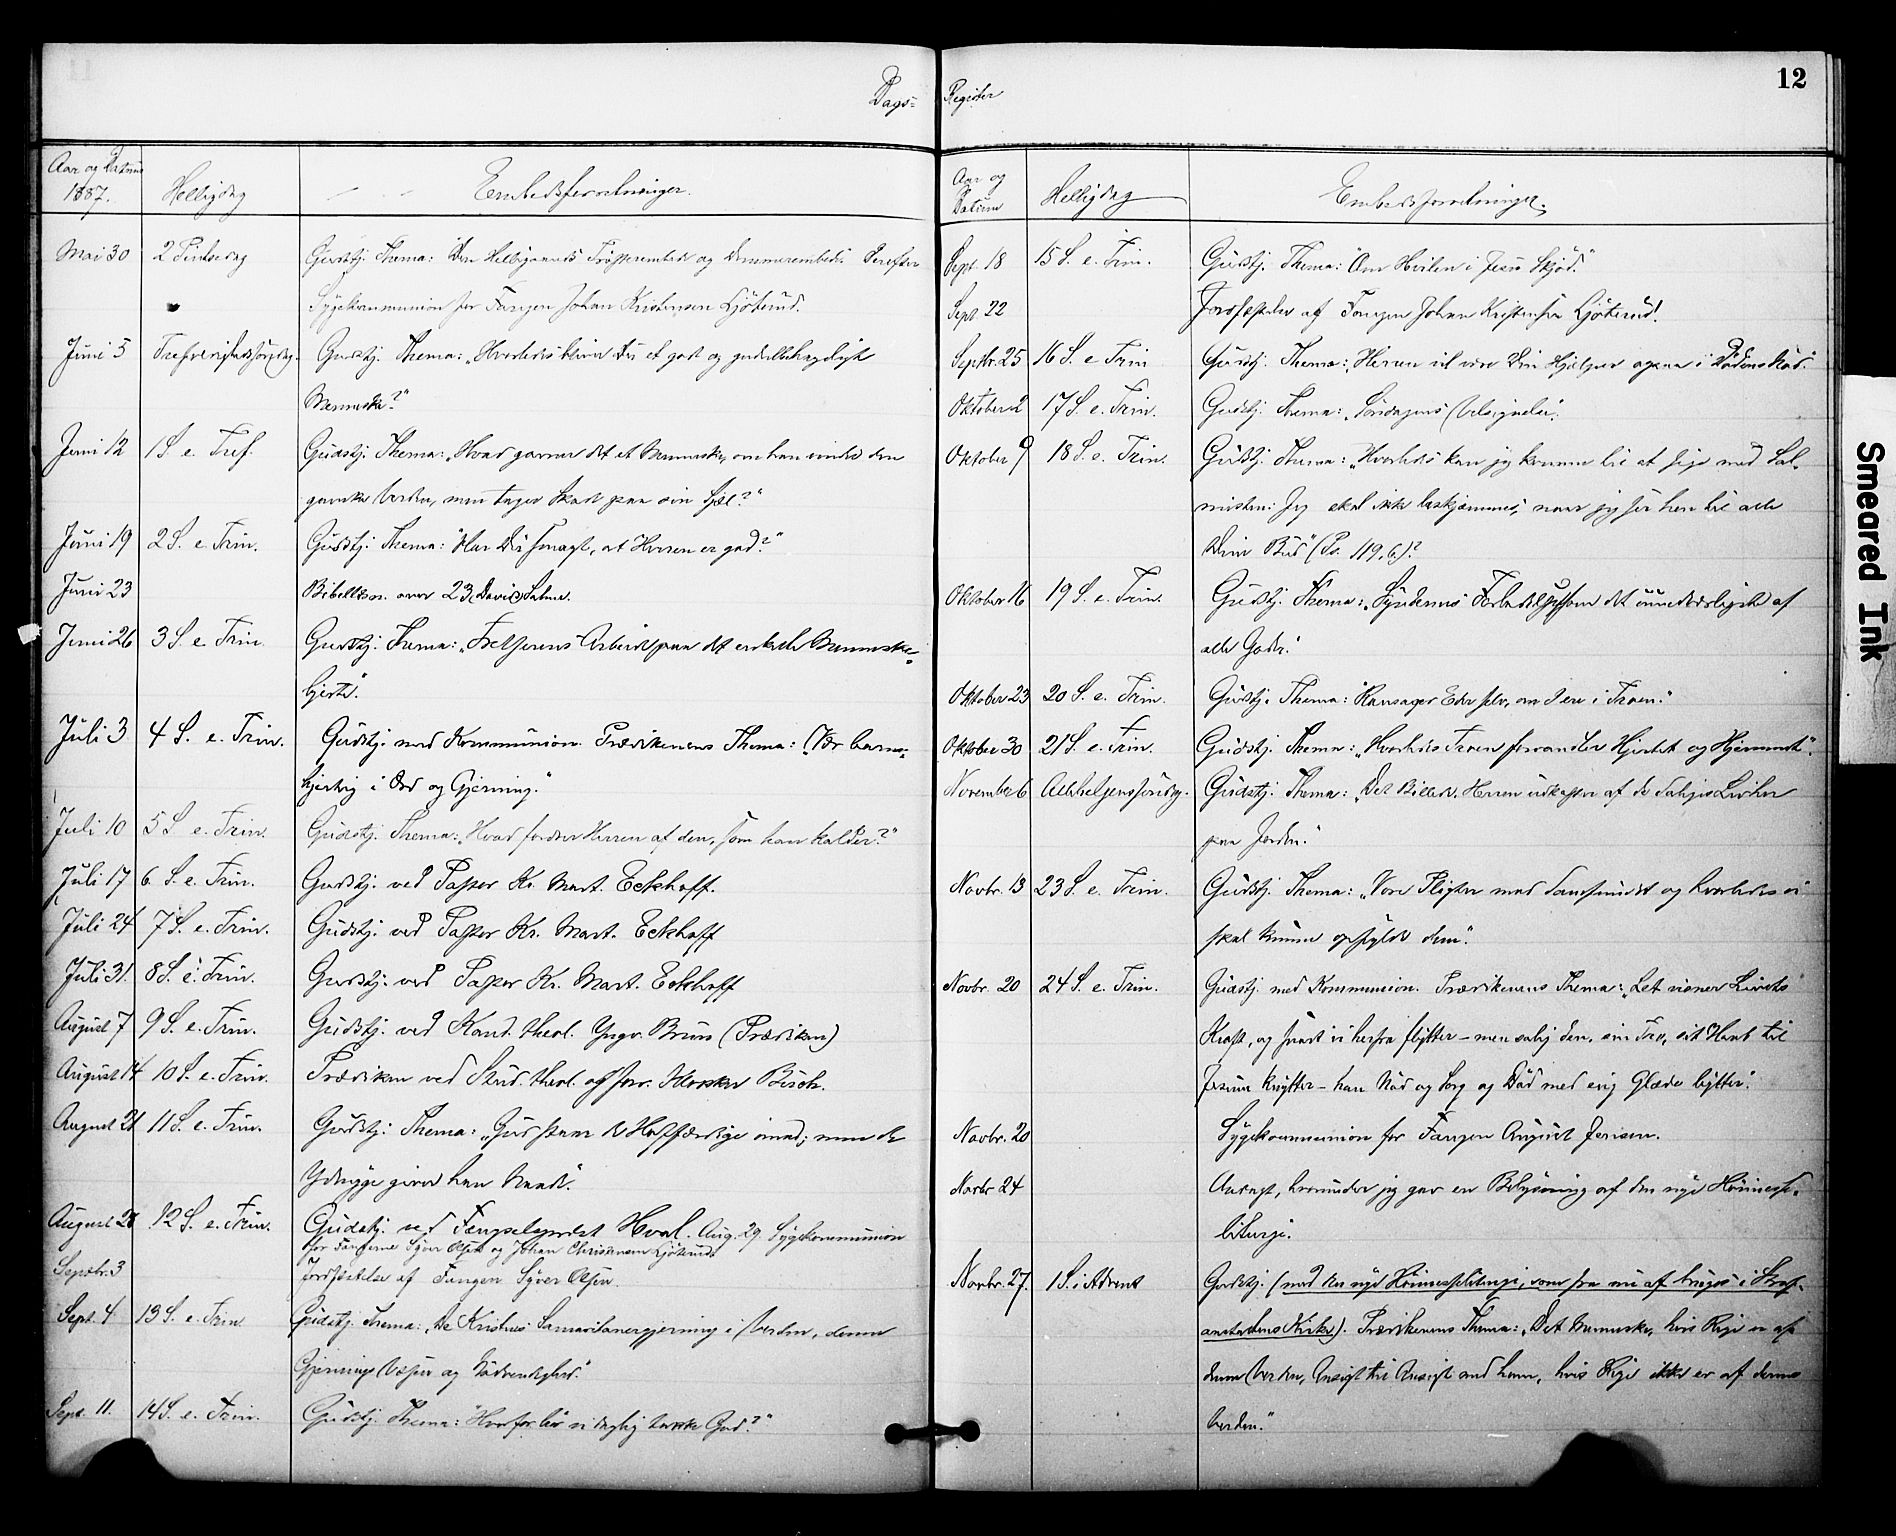 Dags-
Aar og Datum
1887.
Helligdag
Embedsforretninger.
Mai 30 2 Pintsedag Gudstj. Thema: Den Helligaands Trøsterembede og Dommerembede. Derefter
Sygekommunion for Fangen Johan Kristensen Ljøterud.
Juni 5 Trefoldighedssøndag. Gudstj. Thema: „Hvorledes bliver Du et godt og gudvelbehageligt
Menneske?"
Juni 12 1 S. e. Tref. Gudstj. Thema: „Hvad gavner det et Menneske, om han vinder den
ganske Verden, men tager Skade paa sin Sjæl?"
Juni 19 2 S. e. Trin. Gudstj. Thema: "Har Du smagt, at Herren er god?"
Juni 23 Bibellæsn. over 23 Davids Salme.
Juni 26 3 S. e. Trin. Gudstj. Thema: „Frelserens Arbeide paa det enkelte Menneske-
hjerte."
Juli 3 4 S. e. Trin. Gudstj. med Kommunion. Prædikenens Thema: „Vær barm-
hjertig i Ord og Gjerning."
Juli 10 5 S. e. Trin. Gudstj. Thema: „Hvad fordrer Herren af den, som han kalder?"
Juli 17 6. S. e. Trin. Gudstj. ved Pastor Kr. Mart. Eckhoff.
Juli 24 7 S. e. Trin. Gudstj. ved Pastor Kr. Mart. Eckhoff
Juli 31. 8 S. e. Trin. Gudstj. ved Pastor Kr. Mart. Eckhoff
August 7 9 S. e. Trin. Gudstj. ved Kand. theol. Yngv. Bruun (Prædiken)
August 14 10 S. e. Trin. Prædiken ved Stud. theol.
August 21 11 S. e. Trin. Gudstj. Thema: „Gud staar de Hoffærdige imod; men de
Ydmyge giver han Naade."
August 28 12 S. e. Trin. Gudstj. ved Fængselsprest Hval. Aug. 29. Sygekommunion
for Fangerne Syver Olsen og Johan Christensen Ljøterud.
Septbr. 3 Jordfæstelse af Fangen Syver Olsen.
Sept. 4 13 S. e. Trin. Gudstj. Thema: „De Kristnes Samaritanergjerning i Verden, denne
Gjernings Væsen og Nødvendighed."
Sept. 11. 14 S. e. Trin. Gudstj. Thema: "Hvorfor bør vi daglig takke Gud?"
Register
12
Aar og
Datum
Helligdag
Embedsforretninger.
Sept. 18 15 S. e. Trin. Gudstj. Thema: "Om Hvilen i Jesu Skjød."
Sept. 22 Jordfæstelse af Fangen Johan Kristensen Ljøterud.
Septbr. 25 16 S. e. Trin Gudstj. Thema: „Herren vil være Din Hjælper ogsaa i Dødens Nød."
Oktober 2 17 S. e. Trin. Gudstj. Thema: „Søndagens Velsignelse."
Oktober 9 18 S. e. Trin. Gudstj. Thema: „Hvorledes kan jeg komme til at sige med Sal-
misten: Jeg skal ikke beskjæmmes, naar jeg ser hen til alle
Dine Bud" (Ps. 119,6)?
Oktober 16 19 S. e. Trin. Gudstj. Thema: „Syndernes Forladelse som det umiddelbareste af
alle Goder."
Oktober 23 20 S. e. Trin. Gudstj. Thema: "Ransager Eder selv, om I ere i Troen."
Oktober 30 21 S. e. Trin. Gudstj. Thema: „Hvorledes Troen forvandler Hjertet og Hjemmet".
November 6 Allehelgenssøndag. Gudstj. Thema: „Det Billede, Herren udkaster af de Saliges Liv her
paa Jorden."
Novbr. 13 23 S. e. Trin. Gudstj. Thema: „Vore Pligter mod Samfundet og hvorledes vi
skal kunne opfylde dem."
Novbr. 20 24 S. e. Trin. Gudstj. med Kommunion. Prædikenens Thema: „Let visner Livets
Kraft, og snart vi herfra flytter – men salig den, sin Tro, sit Haab til
Jesum knytter – han Nød og Sorg og Død med evig Glæde bytter."
Novbr. 20 Sygekommunion for Fangen August Jensen.
Novbr. 24 Andagt, hvorunder jeg gav en Belysning af den nye Høimesse-
liturgi.
Novbr. 27. 1 S. i Advent Gudstj. (med den nye Høimesseliturgi, som fra nu af bruges i Straf-
anstaltens Kirke). Prædikenens Thema: „Det Menneske, hvis Rige er af
denne Verden, Ansigt til Ansigt med ham, hvis Rige ikke er af denne
Verden."
Smeared Ink